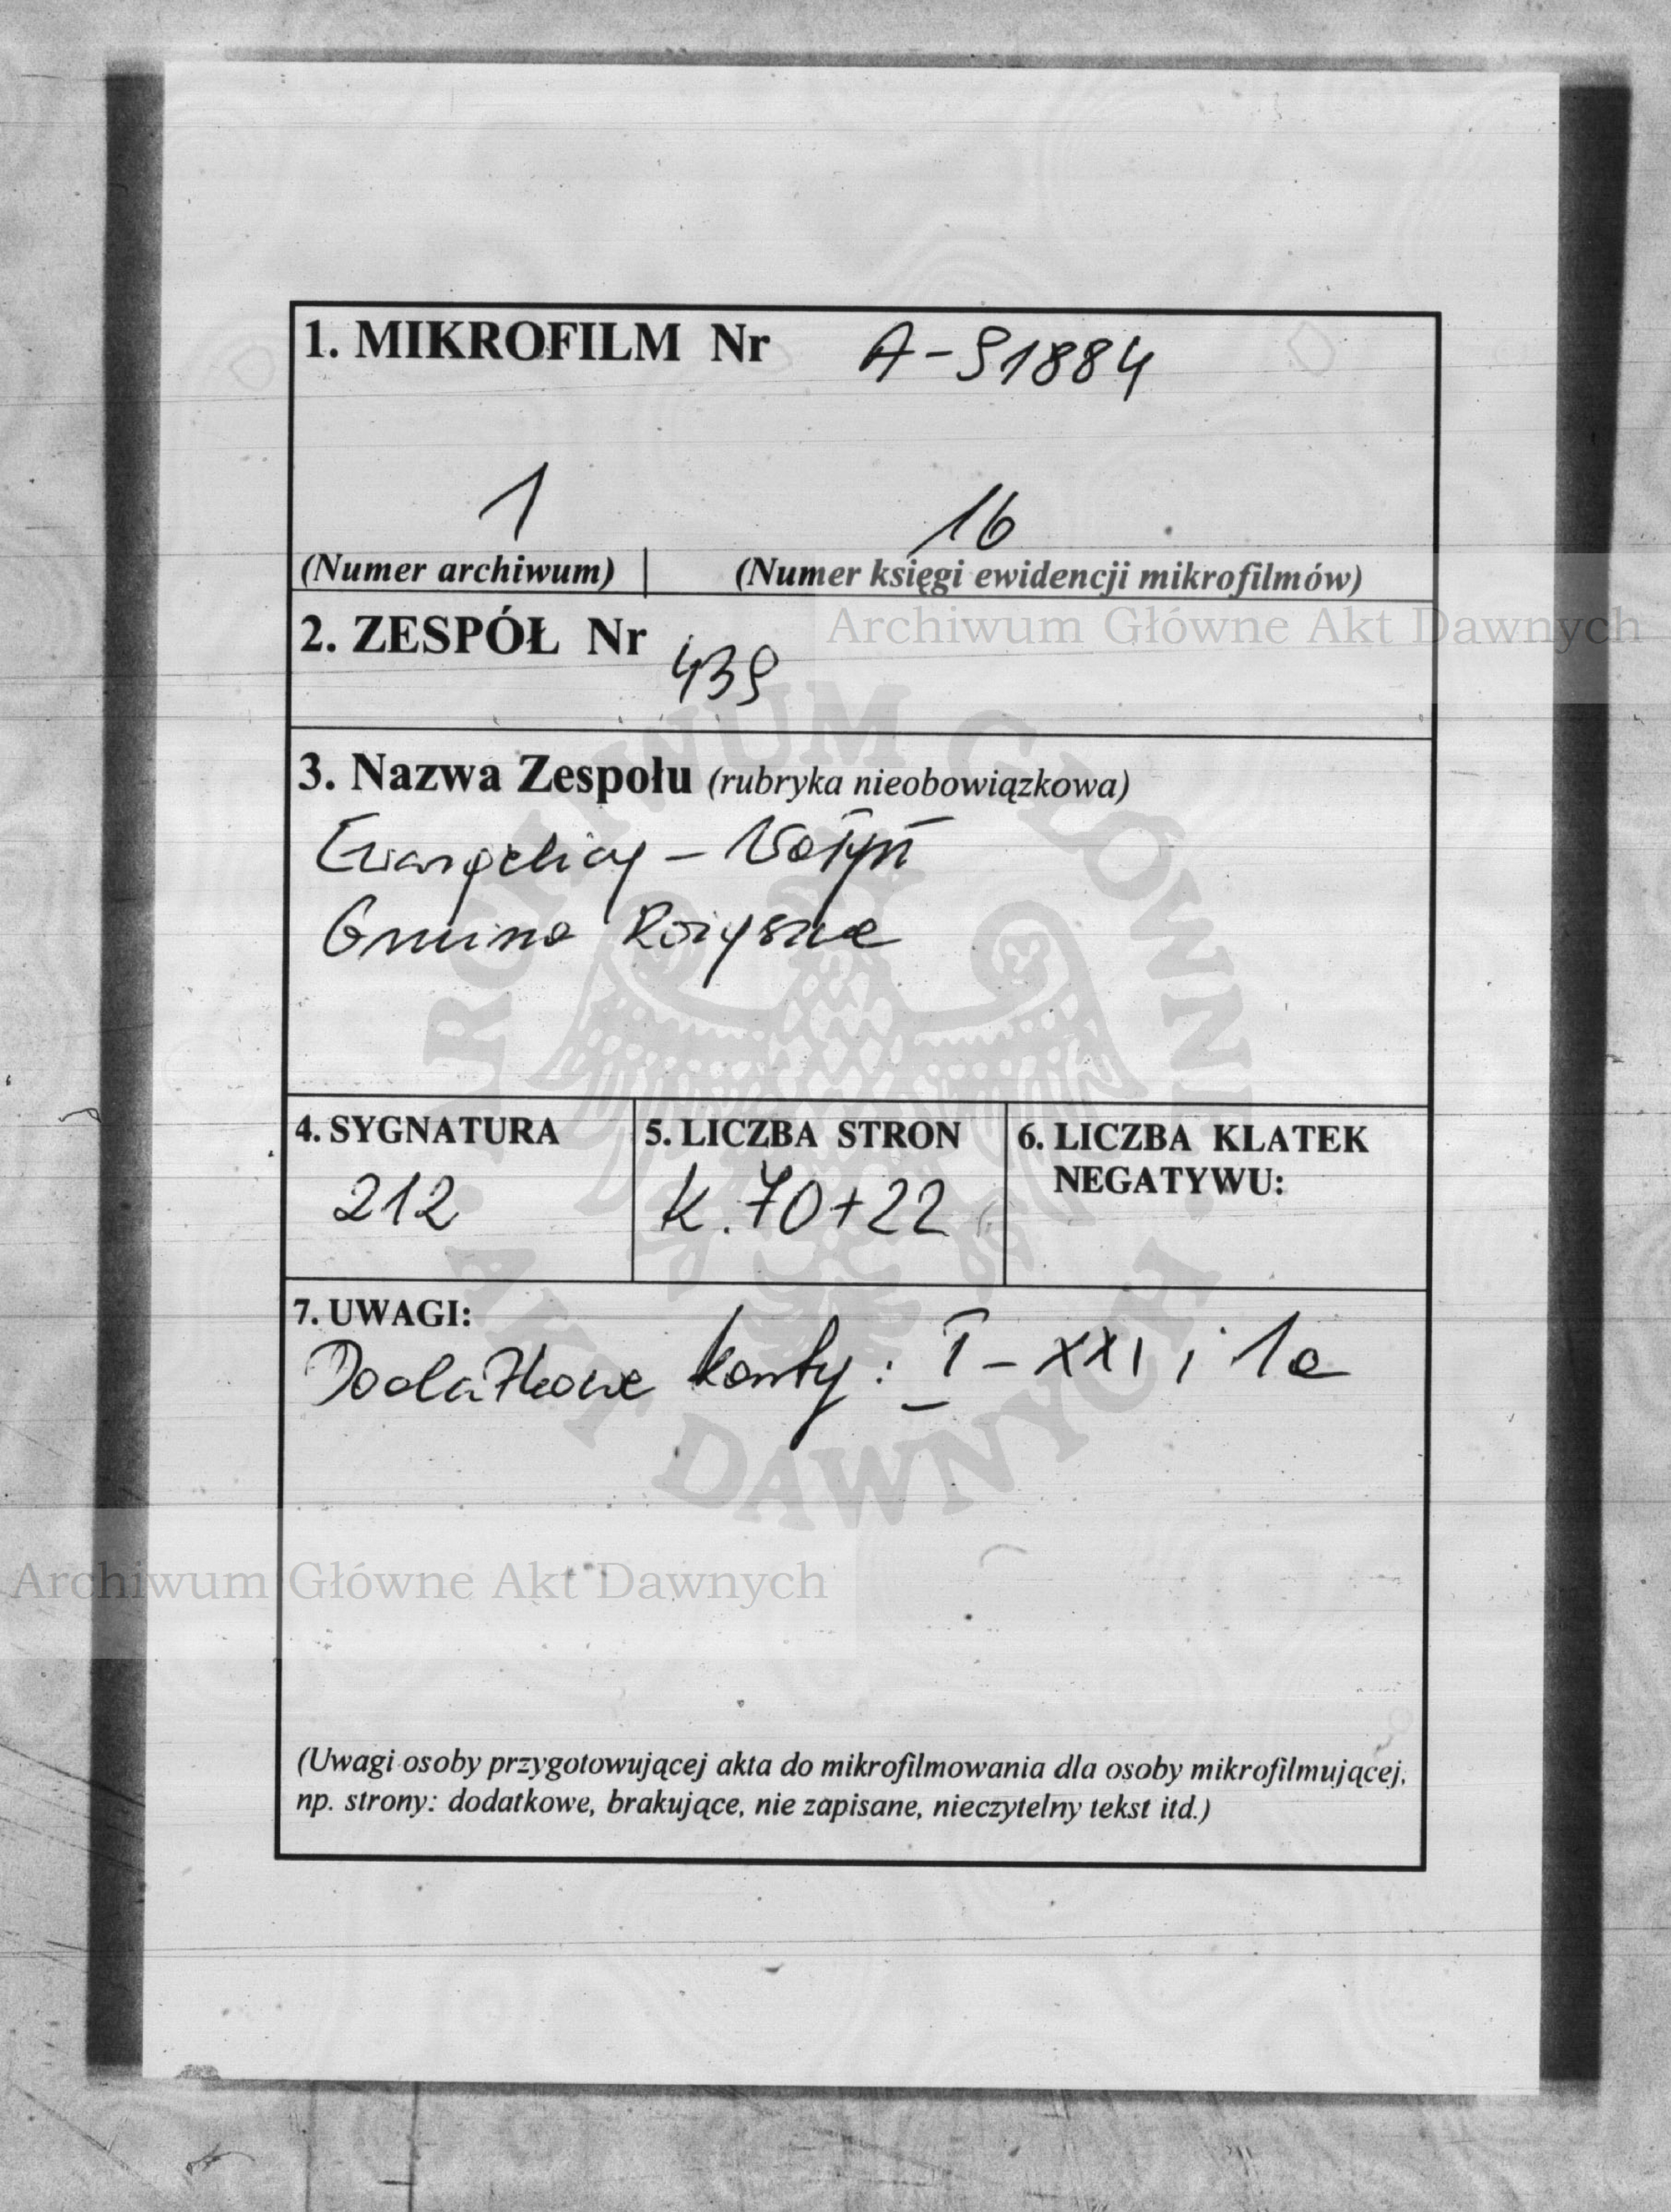 1. MIKROFILM Nr A-91884
1 16
(Numer archiwum) | (Numer księgi ewidencji mikrofilmów)
Archiwum Główne Akt Dawnych
2. ZESPÓŁ Nr 439
3. Nazwa Zespołu (rubryka nieobowiązkowa)
Ewangelicy – Wołyń
Gmina Rożyszcze
ARCHIWUM GŁÓWNE AKT DAWNYCH
4. SYGNATURA
212
5. LICZBA STRON
K. 70+22
6. LICZBA KLATEK
NEGATYWU:
7. UWAGI:
Dodatkowe karty: I – XXI i 1a
Archiwum Główne Akt Dawnych
(Uwagi osoby przygotowującej akta do mikrofilmowania dla osoby mikrofilmującej,
np. strony: dodatkowe, brakujące, nie zapisane, nieczytelny tekst itd.)